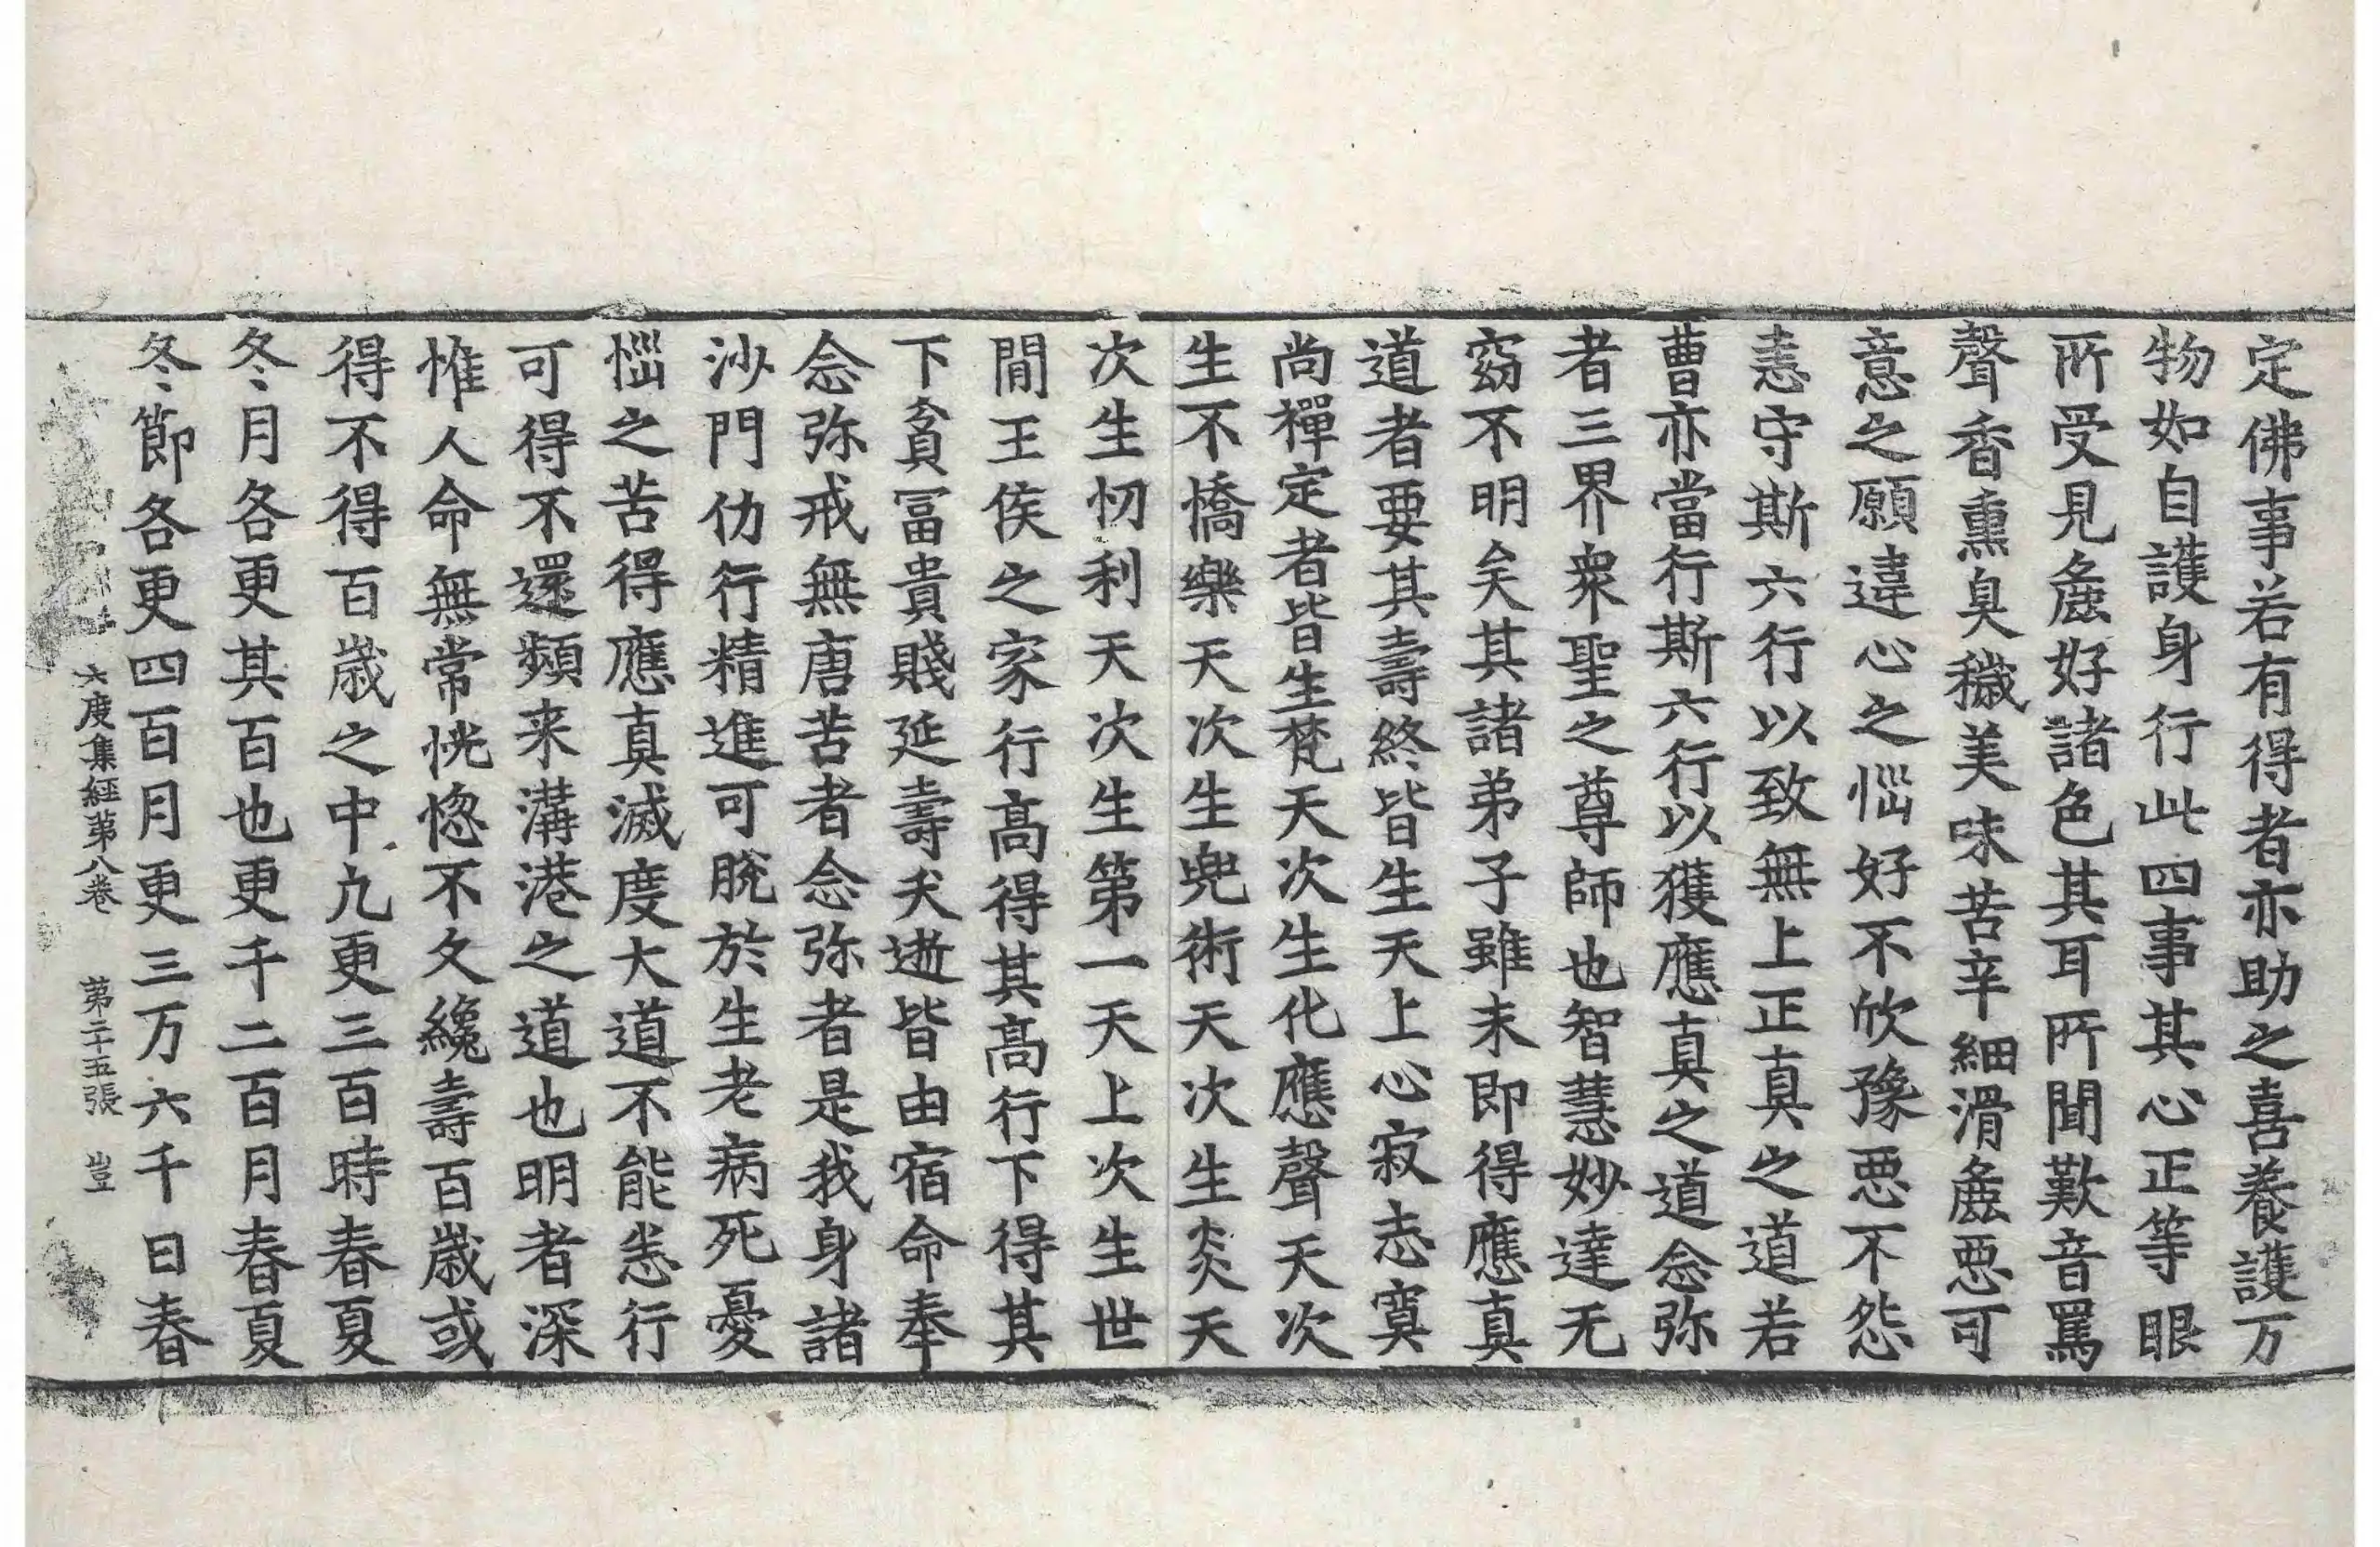 定佛事若有得者亦助之喜養護万
物如自護身行此四事其心正等眼
所受見麁好諸色其耳所聞歎音罵
聲香熏臭穢美味苦辛細滑麁惡可
意之願違心之惱好不欣豫惡不怨
恚守斯六行以致無上正真之道若
曹亦當行斯六行以獲應真之道念弥
者三界衆聖之尊師也智慧妙達无
窈不明矣其諸弟子雖未即得應真
道者要其壽終皆生天上心寂志寞
尚禪定者皆生梵天次生化應聲天次
生不憍樂天次生兜術天次生炎天
次生忉利天次生第一天上次生世
閒王侯之家行髙得其髙行下得其
下貧冨貴賤延壽夭逝皆由宿命奉
念弥戒無唐苦者念弥者是我身諸
沙門仂行精進可脫於生老病死憂
惱之苦得應真滅度大道不能悉行
可得不還頻来溝港之道也明者深
惟人命無常恍惚不久纔壽百歲或
得不得百歲之中凢更三百時春夏
冬月各更其百也更千二百月春夏
冬節各更四百月更三万六千日春
六度集經第八卷 第二十五張 豈